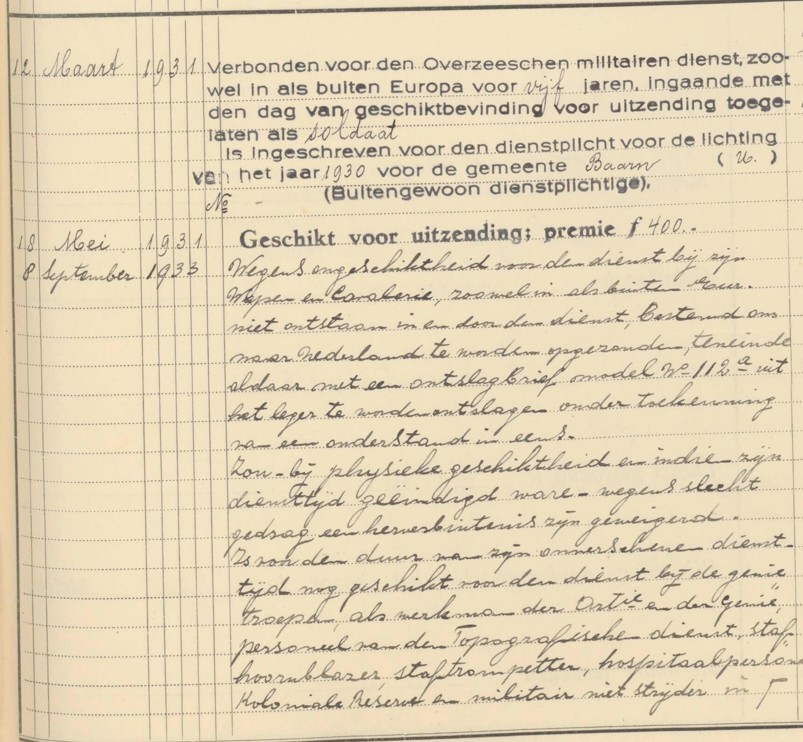 12 Maart 1931 Verbonden voor den Overzeeschen militairen dienst, zoo-
wel in als buiten Europa voor vijf jaren, ingaande met
den dag van geschiktbevinding voor uitzending toege-
laten als soldaat
Is ingeschreven voor den dienstplicht voor de lichting
van het jaar 1930 voor de gemeente Baarn (U.)
(Buitengewoon dienstplichtige).
No -
18 Mei 1931 Geschikt voor uitzending; premie f 400.-
8 September 1933 Wegens ongeschiktheid voor den dienst bij zijn
Wapen en Cavalerie, zoowel in als buiten Eur.
niet ontstaan in en door den dienst, bestemd om
naar Nederland te worden opgezonden, teneinde
aldaar met een ontslagbrief model No 112a uit
het leger te worden ontslagen onder toekenning
van een onderstand in eens.
Zou - bij physieke geschiktheid en indien zijn
diensttijd geëindigd ware - wegens slecht
gedrag een herverbintenis zijn geweigerd.
Is voor den duur van zijn dienst-
tijd nog geschikt voor den dienst bij de genie
troepen, als werkman der Artie en der Genie,
personeel van den Topografische dienst, staf-
hoornblazer, staftrompetter, hospitaalperson
Koloniale Reserve en militair niet strijder in